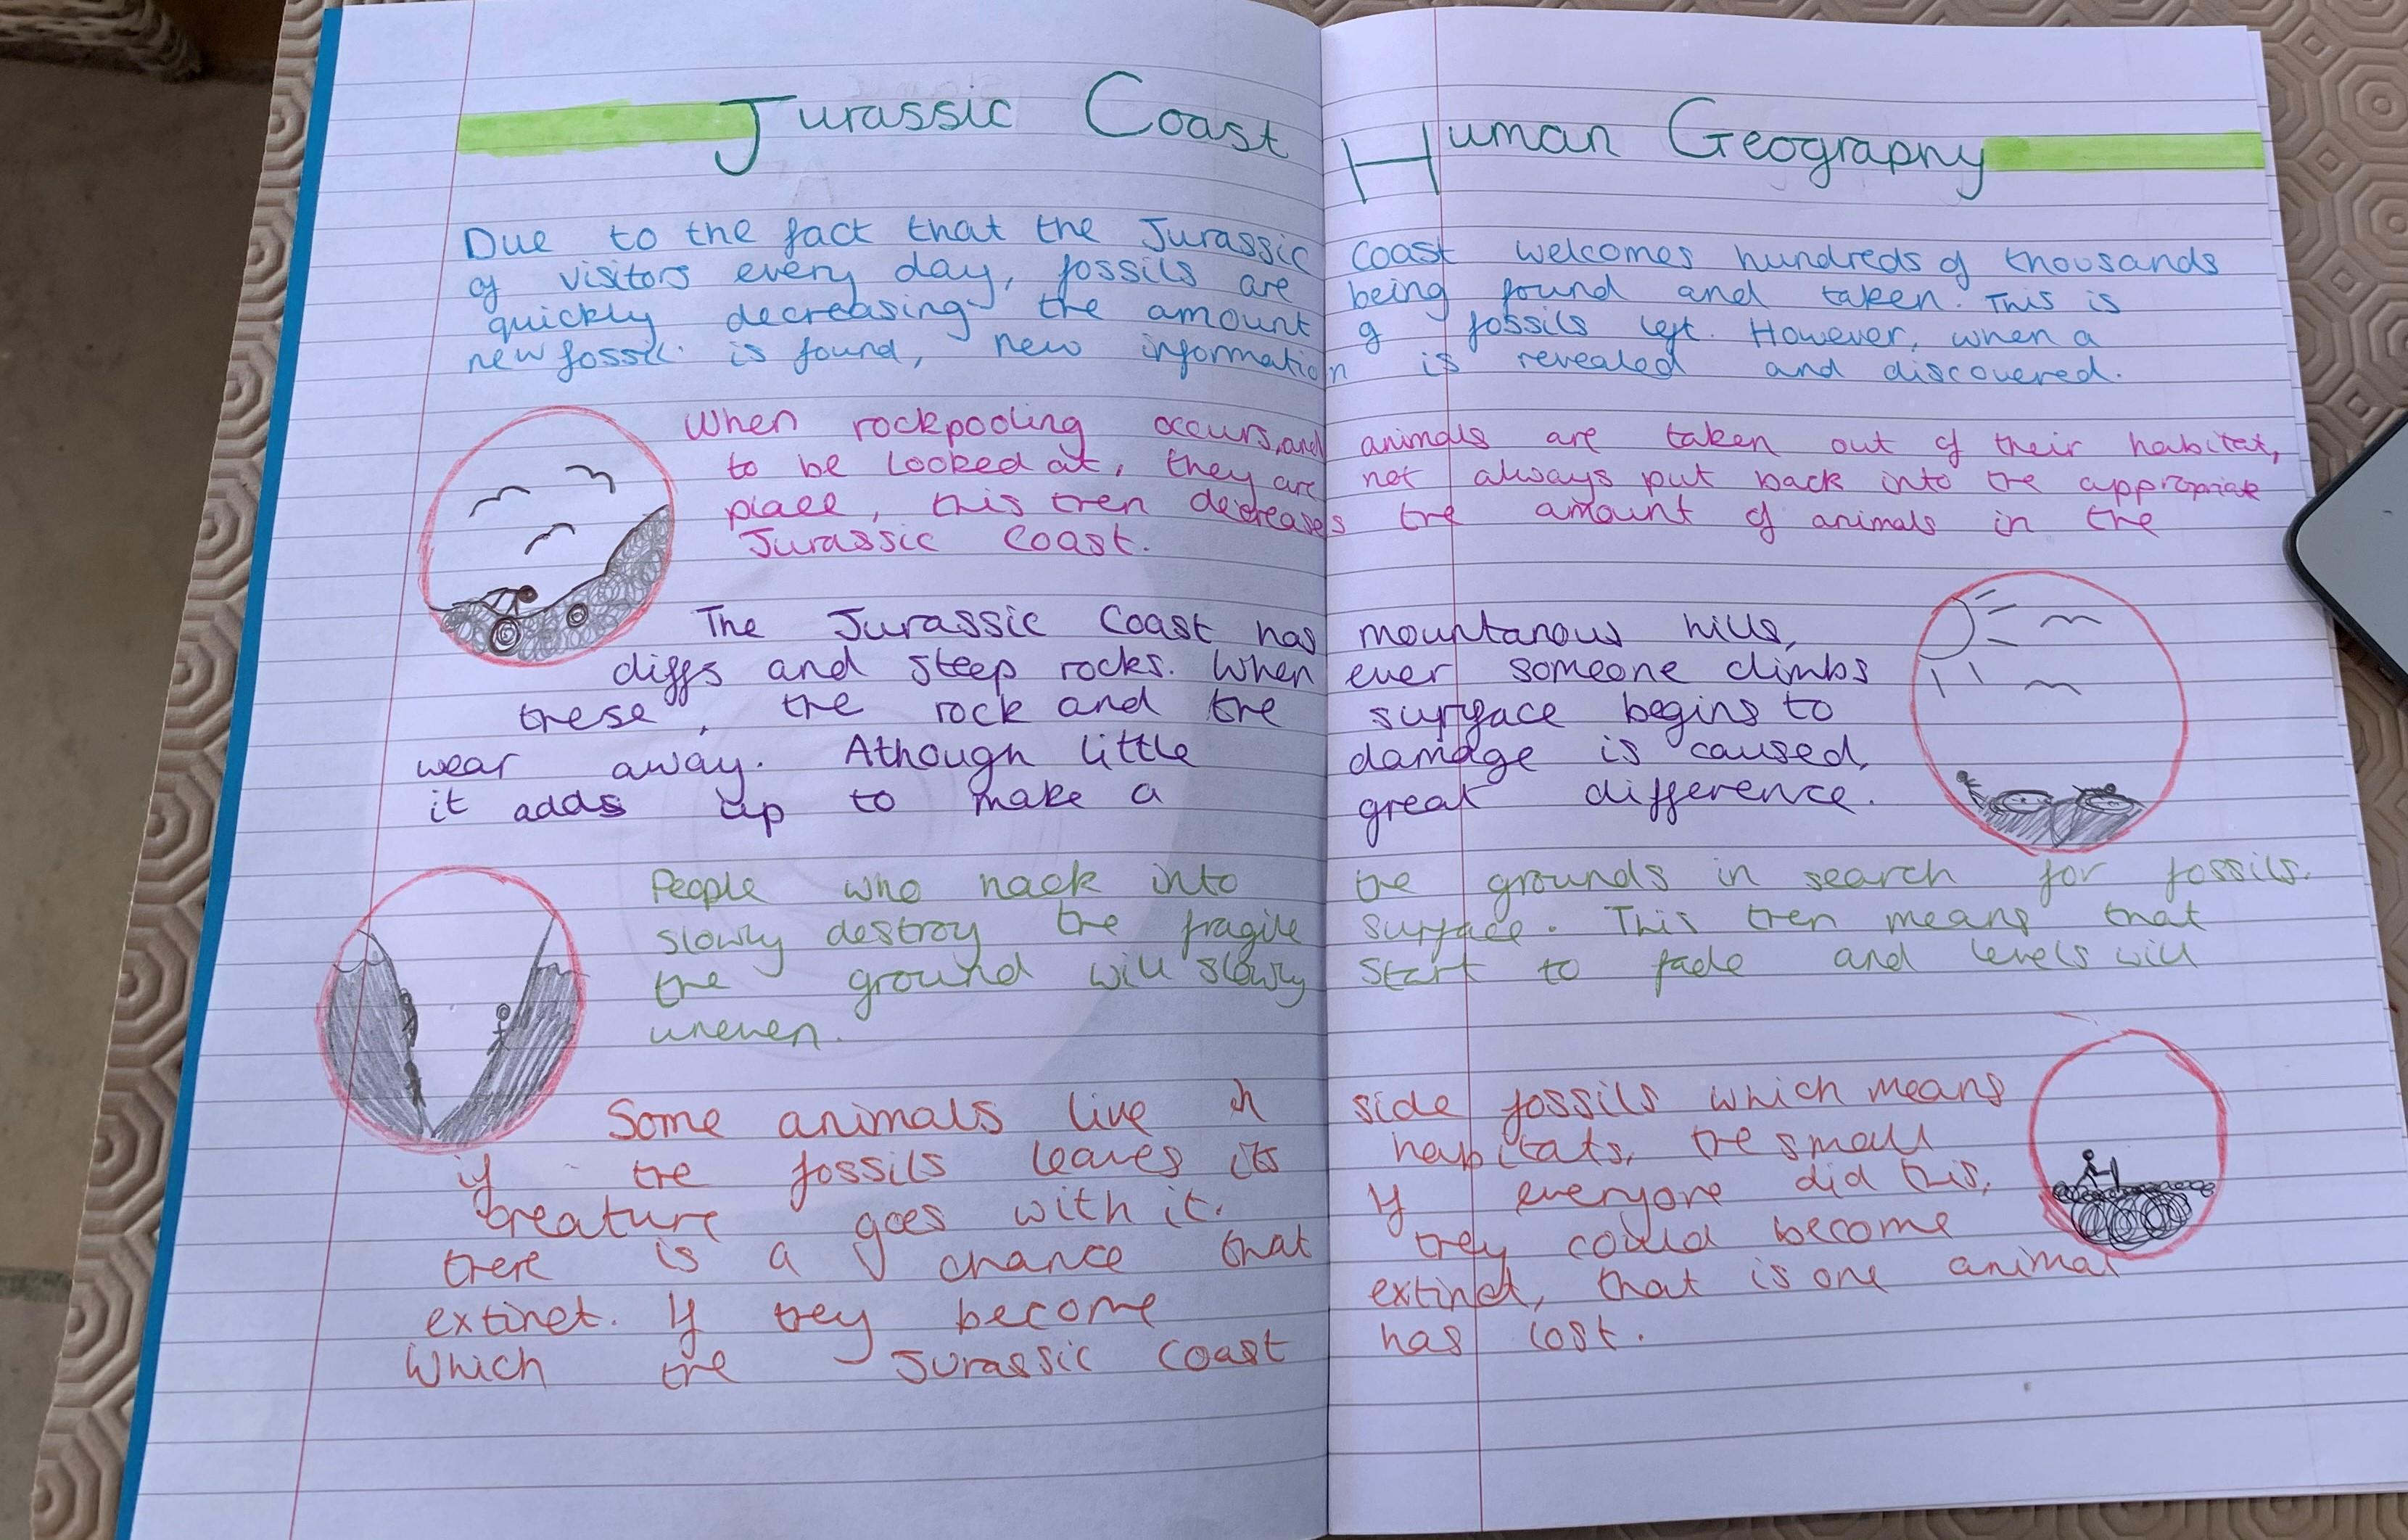 Jurassic Coast Human Geography
Due to the fact that the Jurassic Coast welcomes hundreds of thousands
of visitors every day, fossils are being found and taken. This is
quickly decreasing the amount of fossils left. However, when a
new fossil is found, new information is revealed and discovered.
When rockpooling occurs, and animals are taken out of their habitat,
to be looked at, they are not always put back into the appropriate
place, this then decreases the amount of animals in the
Jurassic Coast.
The Jurassic Coast has mountanous hills,
cliffs and steep rocks. When ever someone climbs
these, the rock and the surface begins to
wear away. Athough little damage is caused,
it adds up to make a great difference.
People who hack into the grounds in search for fossils.
slowly destroy the fragile surface. This then means that
the ground will slowly start to fade and levels will
uneven.
Some animals live in side fossils which means
if the fossils leaves its habitats, the small
creature goes with it. If everyone did this,
there is a chance that they could become
extinct. If they become extinct, that is one animal
which the Jurassic Coast has lost.